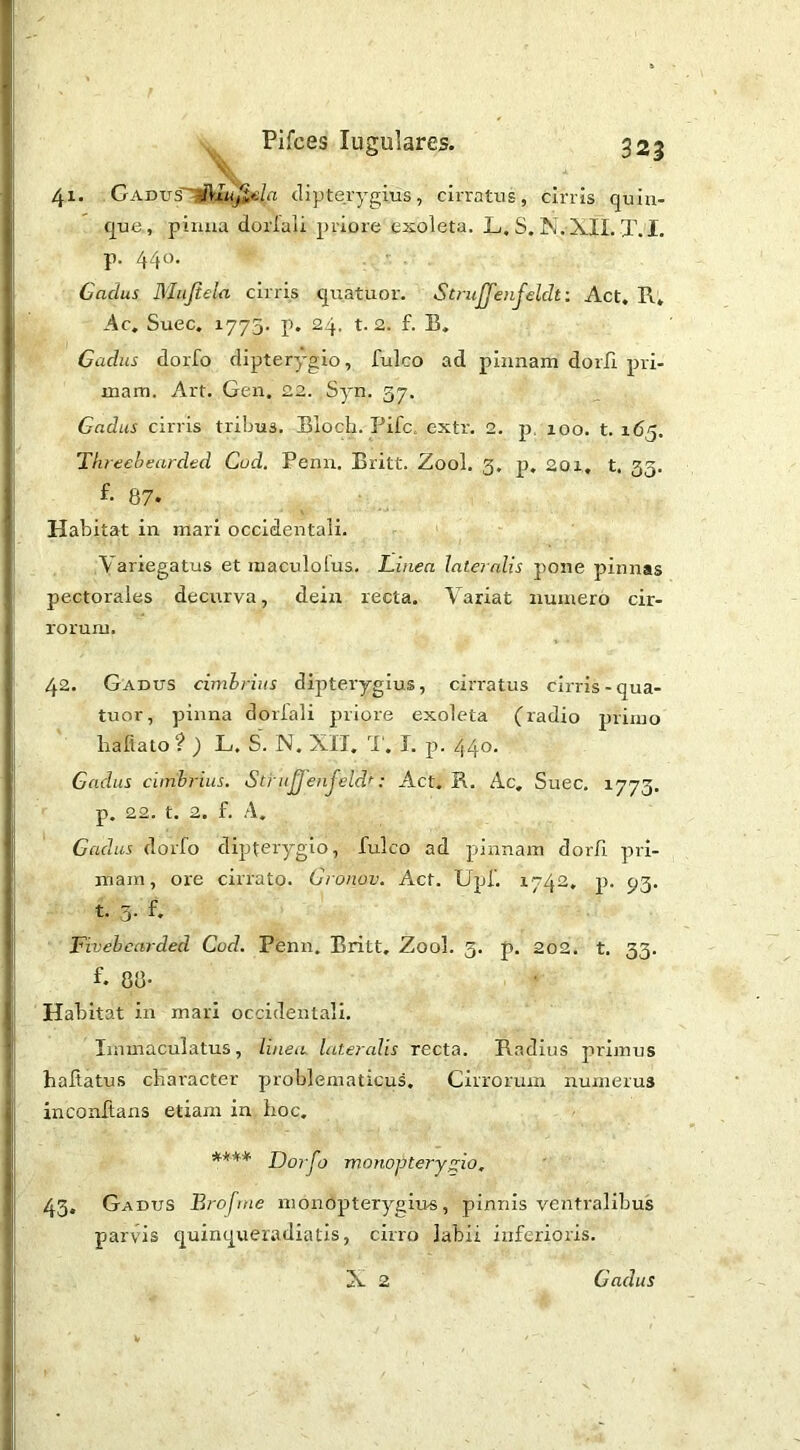 Piſces Iugulares. 323
41. GADUS Muſtela dipterygius, cirratus, cirris quin-
que, pinna dorſali priore exoleta. L. S. N. XII. T. I.
p. 440.
Gadus Muſtela cirris quatuor. Struſſenfeldt: Act. R.
Ac. Suec. 1773. p. 24. t. 2. f. B.
Gadus dorſo dipterygio, ſulco ad pinnam dorſi pri-
mam. Art. Gen. 22. Syn. 37.
Gadus cirris tribus. Bloch. Piſc. extr. 2. p. 100. t. 165.
Threebearded Cod. Penn. Britt. Zool. 3. p. 201. t. 33.
f. 87.
Habitat in mari occidentali.
Variegatus et maculoſus. Linea lateralis pone pinnas
pectorales decurva, dein recta. Variat numero cir-
rorum.
42. GADUS cimbrius dipterygius, cirratus cirris-qua-
tuor, pinna dorſali priore exoleta (radio primo
haſtato?) L. S. N. XII. T. I. p. 440.
Gadus cimbrius. Struſſenfeldt: Act. R. Ac. Suec. 1773.
p. 22. t. 2. f. A.
Gadus dorſo dipterygio, ſulco ad pinnam dorſi pri-
mam, ore cirrato. Gronov. Act. Upſ. 1742. p. 93.
t. 3. f.
Fivebearded Cod. Penn. Britt. Zool. 3. p. 202. t. 33.
f. 88.
Habitat in mari occidentali.
Immaculatus, linea lateralis recta. Radius primus
haſtatus character problematicus. Cirrorum numerus
inconſtans etiam in hoc.
**** Dorſo monopterygio.
43. GADUS Broſme monopterygius, pinnis ventralibus
parvis quinqueradiatis, cirro labii inferioris.
X 2 Gadus